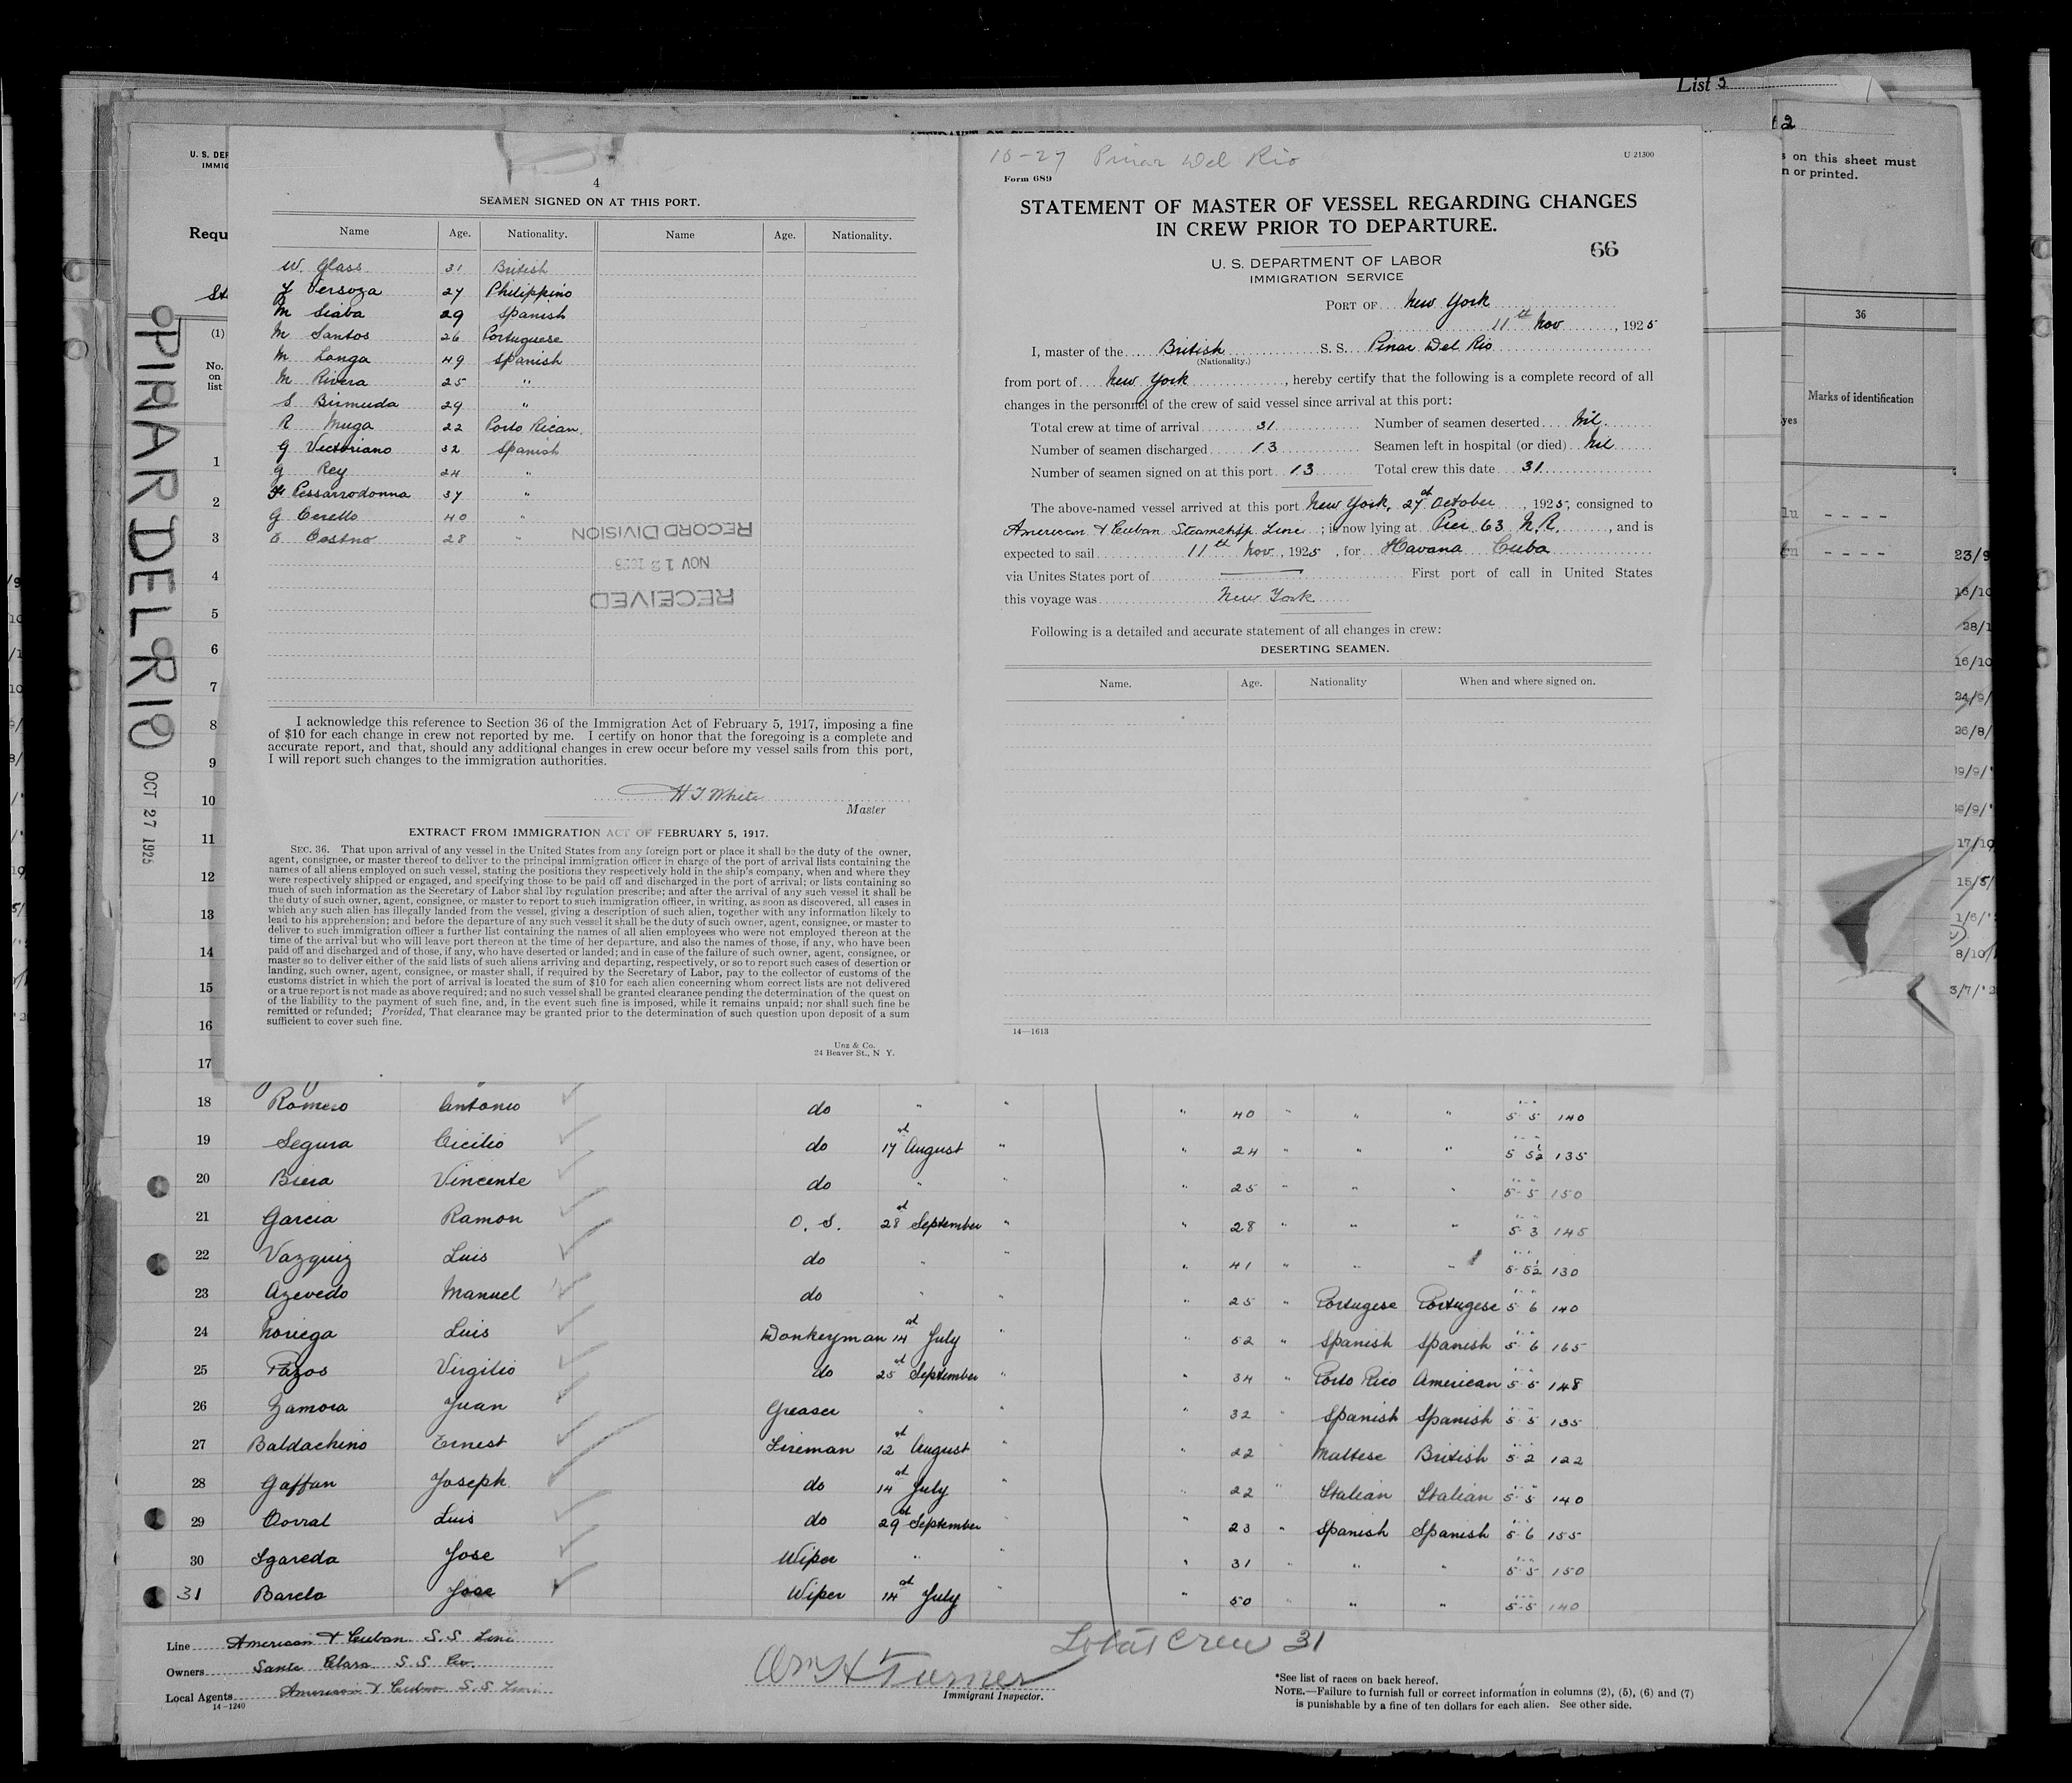 List 3
U. S. DEP
IMMIG
Requ
(1)
No.
on
list
1
2
3
4
5
6
7
8
9
10
11
12
13
14
15
16
17
PINAR DEL RIO
OCT 27 1925
4
SEAMEN SIGNED ON AT THIS PORT.
Name Age. Nationality. Name Age. Nationality.
W. Glass 31 British
Y Versoza 27 Philippino
M Siaba 29 Spanish
M Santos 26 Portuguese
M Longa 49 Spanish
M Rivera 25 "
S Birmuda 29 "
R Muga 22 Porto Rican.
G Victoriano 32 Spanish
G Rey 24 "
Pessarrodonna 37 "
G Cerello 40 "
E Costno 28 "
RECORD DIVISION
RECEIVED
I acknowledge this reference to Section 36 of the Immigration Act of February 5, 1917, imposing a fine
of $10 for each change in crew not reported by me. I certify on honor that the foregoing is a complete and
accurate report, and that, should any additional changes in crew occur before my vessel sails from this port,
I will report such changes to the immigration authorities.
H T White
Master
EXTRACT FROM IMMIGRATION ACT OF FEBRUARY 5, 1917.
SEC. 36. That upon arrival of any vessel in the United States from any foreign port or place it shall be the duty of the owner,
agent, consignee, or master thereof to deliver to the principal immigration officer in charge of the port of arrival lists containing the
names of all aliens employed on such vessel, stating the positions they respectively hold in the ship's company, when and where they
were respectively shipped or engaged, and specifying those to be paid off and discharged in the port of arrival; or lists containing so
much of such information as the Secretary of Labor shal lby regulation prescribe; and after the arrival of any such vessel it shall be
the duty of such owner, agent, consignee, or master to report to such immigration officer, in writing, as soon as discovered, all cases in
which any such alien has illegally landed from the vessel, giving a description of such alien, together with any information likely to
lead to his apprehension; and before the departure of any such vessel it shall be the duty of such owner, agent, consignee, or master to
deliver to such immigration officer a further list containing the names of all alien employees who were not employed thereon at the
time of the arrival but who will leave port thereon at the time of her departure, and also the names of those, if any, who have been
paid off and discharged and of those, if any, who have deserted or landed; and in case of the failure of such owner, agent, consignee, or
master so to deliver either of the said lists of such aliens arriving and departing, respectively, or so to report such cases of desertion or
landing, such owner, agent, consignee, or master shall, if required by the Secretary of Labor, pay to the collector of customs of the
customs district in which the port of arrival is located the sum of $10 for each alien concerning whom correct lists are not delivered
or a true report is not made as above required; and no such vessel shall be granted clearance pending the determination of the quest on
of the liability to the payment of such fine, and, in the event such fine is imposed, while it remains unpaid; nor shall such fine be
remitted or refunded; Provided, That clearance may be granted prior to the determination of such question upon deposit of a sum
sufficient to cover such fine.
Unz & Co.
24 Beaver St., N Y.
10-27 Pinar Del Rio
U 21300
Form 689
STATEMENT OF MASTER OF VESSEL REGARDING CHANGES
IN CREW PRIOR TO DEPARTURE.
66
U. S. DEPARTMENT OF LABOR
IMMIGRATION SERVICE
PORT OF New York
11th Nov, 1925
I, master of the British S. S. Pinar Del Rio
(Nationality.)
from port of New York, hereby certify that the following is a complete record of all
changes in the personnel of the crew of said vessel since arrival at this port:
Total crew at time of arrival 31 Number of seamen deserted Nil.
Number of seamen discharged 13 Seamen left in hospital (or died) Nil
Number of seamen signed on at this port 13 Total crew this date 31
The above-named vessel arrived at this port New York, 27st October, 1925, consigned to
American & Cuban Steamship Line; is now lying at Pier 63 N.R., and is
expected to sail 11th Nov, 1925, for Havana Cuba
via Unites States port of First port of call in United States
this voyage was New York
Following is a detailed and accurate statement of all changes in crew:
DESERTING SEAMEN.
Name. Age. Nationality When and where signed on.
14—1613
62
s on this sheet must
n or printed.
36
Marks of identification
yes
18 Romero Antonio do " " " 40 " " " 5 5 140
19 Segura Cicilio do 17st August " " 24 " " " 5 5½ 135
20 Biera Vincente do " " " 25 " " " 5 5 150
21 Garcia Ramon O. S. 28st September " " 28 " " " 5 3 145
22 Vazquiz Luis do " " " 41 " " " 5 5½ 130
23 Azevedo Manuel do " " " 25 " Portugese Portugese 5 6 140
24 Noriega Luis Donkeyman 14st July " " 52 " Spanish Spanish 5 6 165
25 Pazos Virgilio do 25st September " " 34 " Porto Rico American 5 5 148
26 Zamora Juan Greaser " " " 32 " Spanish Spanish 5 5 135
27 Baldachino Ernest Fireman 12st August " " 22 Maltese British 5 2 122
28 Gaffan Joseph do 14st July " " 22 " Italian Italian 5 5 140
29 Corral Luis do 29st September " " 23 " Spanish Spanish 5 6 155
30 Igareda Jose Wiper " " " 31 " " " 5 5 150
31 Barcla Jose Wiper 14st July " " 50 " " " 5 5 140
Line American & Cuban S.S Line
Owners Santa Clara S.S Co.
Local Agents American & Cuban S.S Line
14-1240
Wm H Turner
Immigrant Inspector.
Total Crew 31
*See list of races on back hereof.
NOTE.—Failure to furnish full or correct information in columns (2), (5), (6) and (7)
is punishable by a fine of ten dollars for each alien. See other side.